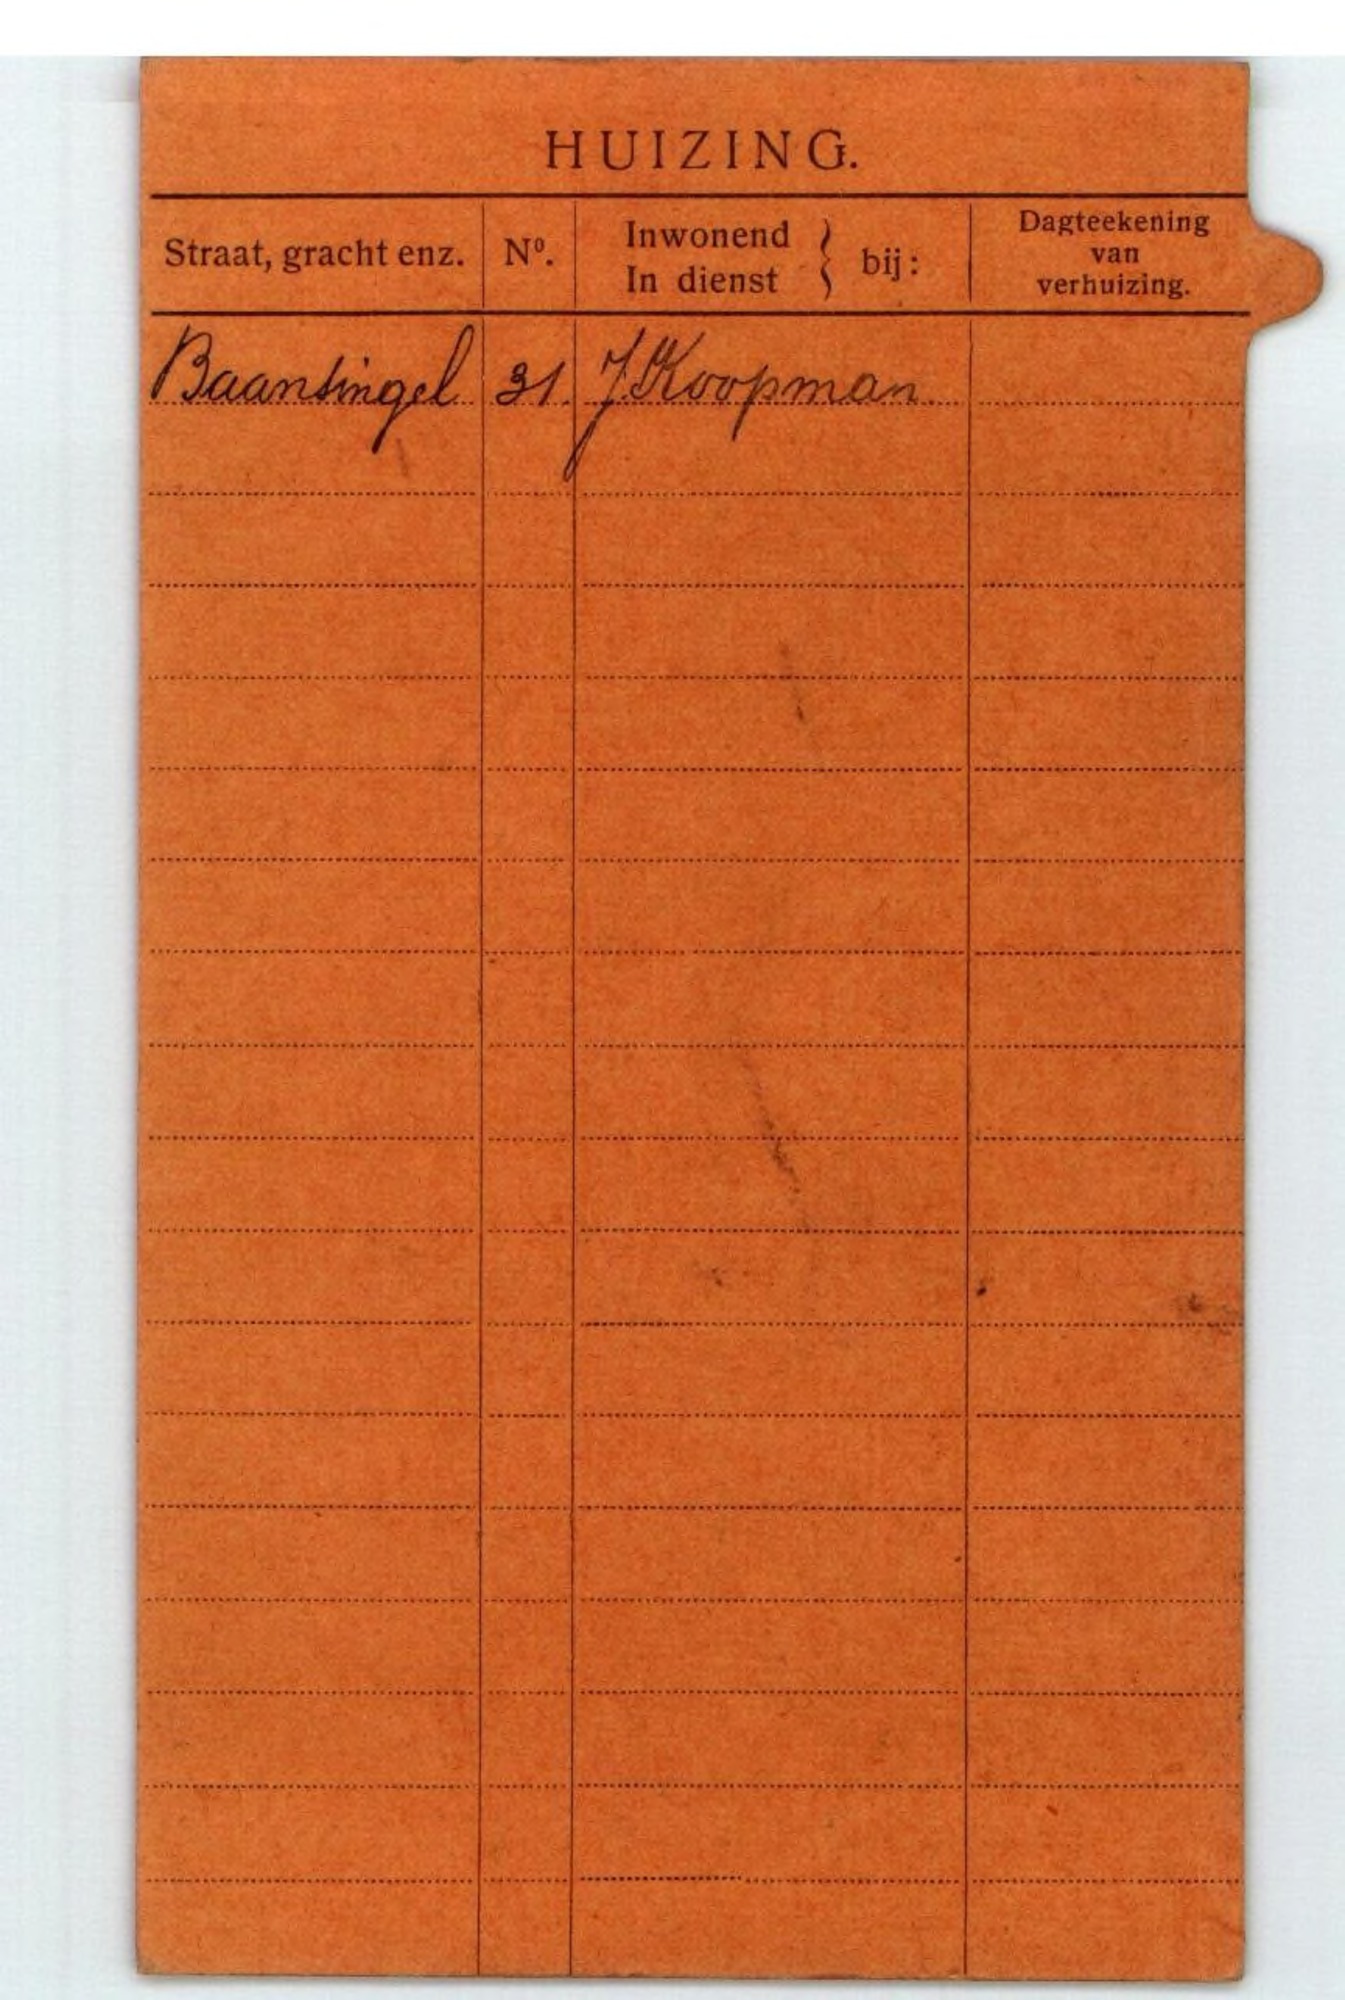 HUIZING.
Straat, gracht enz.
Nº.
Inwonend
In dienst
} bij:
Dagteekening
van
verhuizing.
Baansingel 31. J. Koopman.